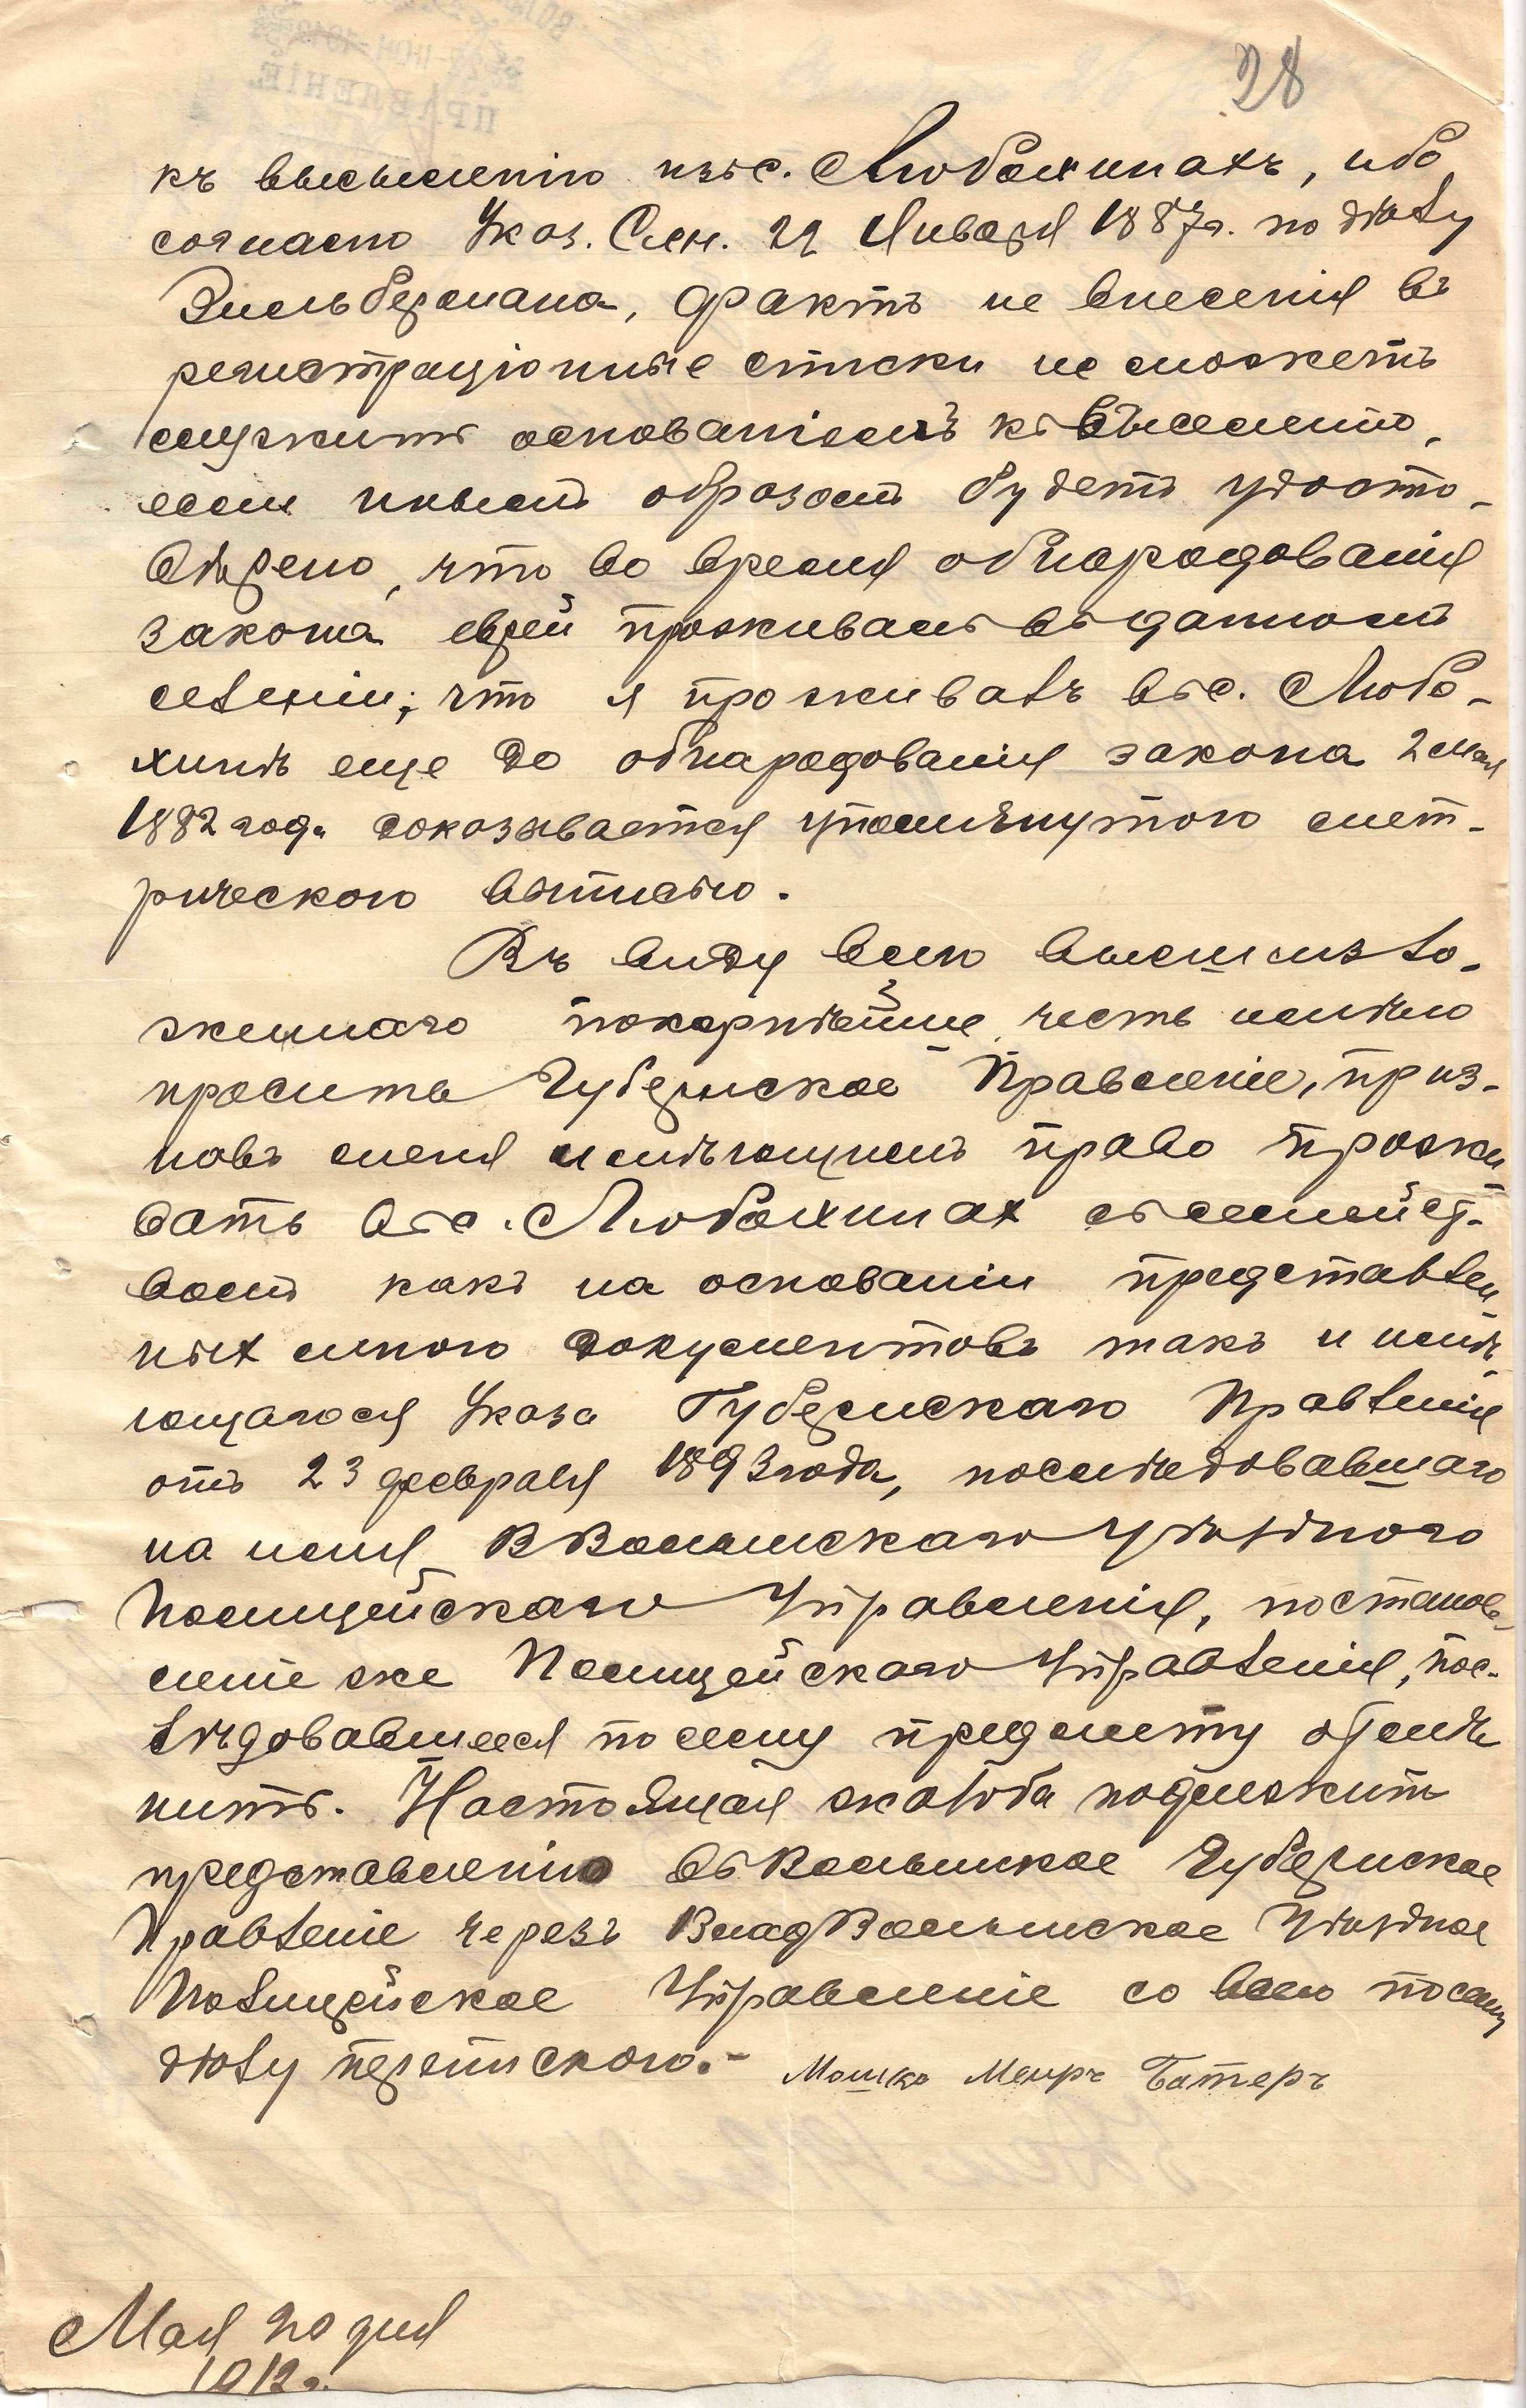 28
къ выселенію изъ с. Любохинахъ, ибо,
согласно Указ. Сен. 22 Января 1887 г. по дѣлу
Зильбермана, фактъ не внесенія въ
регистраціонные списки не можетъ
служить основаніемъ къ выселенію,
если инымъ образомъ будетъ удосто-
вѣрено, что во время обнародованія
закона еврей проживалъ въ данномъ
селеніи; что я проживалъ въ с. Любо-
хинѣ еще до обнародованія закона 2 мая
1882 года доказывается упомянутою мет-
рическою выписью.
Въ виду всего вышеизло-
женнаго покорнѣйше честь имѣю
просить Губернское Правленіе, приз-
навъ меня имѣющимъ право прожи
вать въ с. Любохинах съ семейст-
вомъ какъ на основаніи представлен
ных мною документовъ такъ и имѣ-
ющагося Указа Губернскаго Правленія
отъ 23 февраля 1893 года, последовавшаго
на имя В Волынскаго Уѣзднаго
Полицейскаго Управленія, постанов-
леніе же Полицейскаго Управленія, пос-
лѣдовавшееся по сему предмету отмѣ
нить. Настоящая жалоба подлежитъ
представленію въ Волынское Губернское
Правленіе через Влад Волынское Уѣздное
Полицейское Управленіе со всею по сему
дѣлу перепискою.- Мошко Меиръ Батеръ
Мая 20 дня
1912 г.
ПРАВЛЕНІЕ